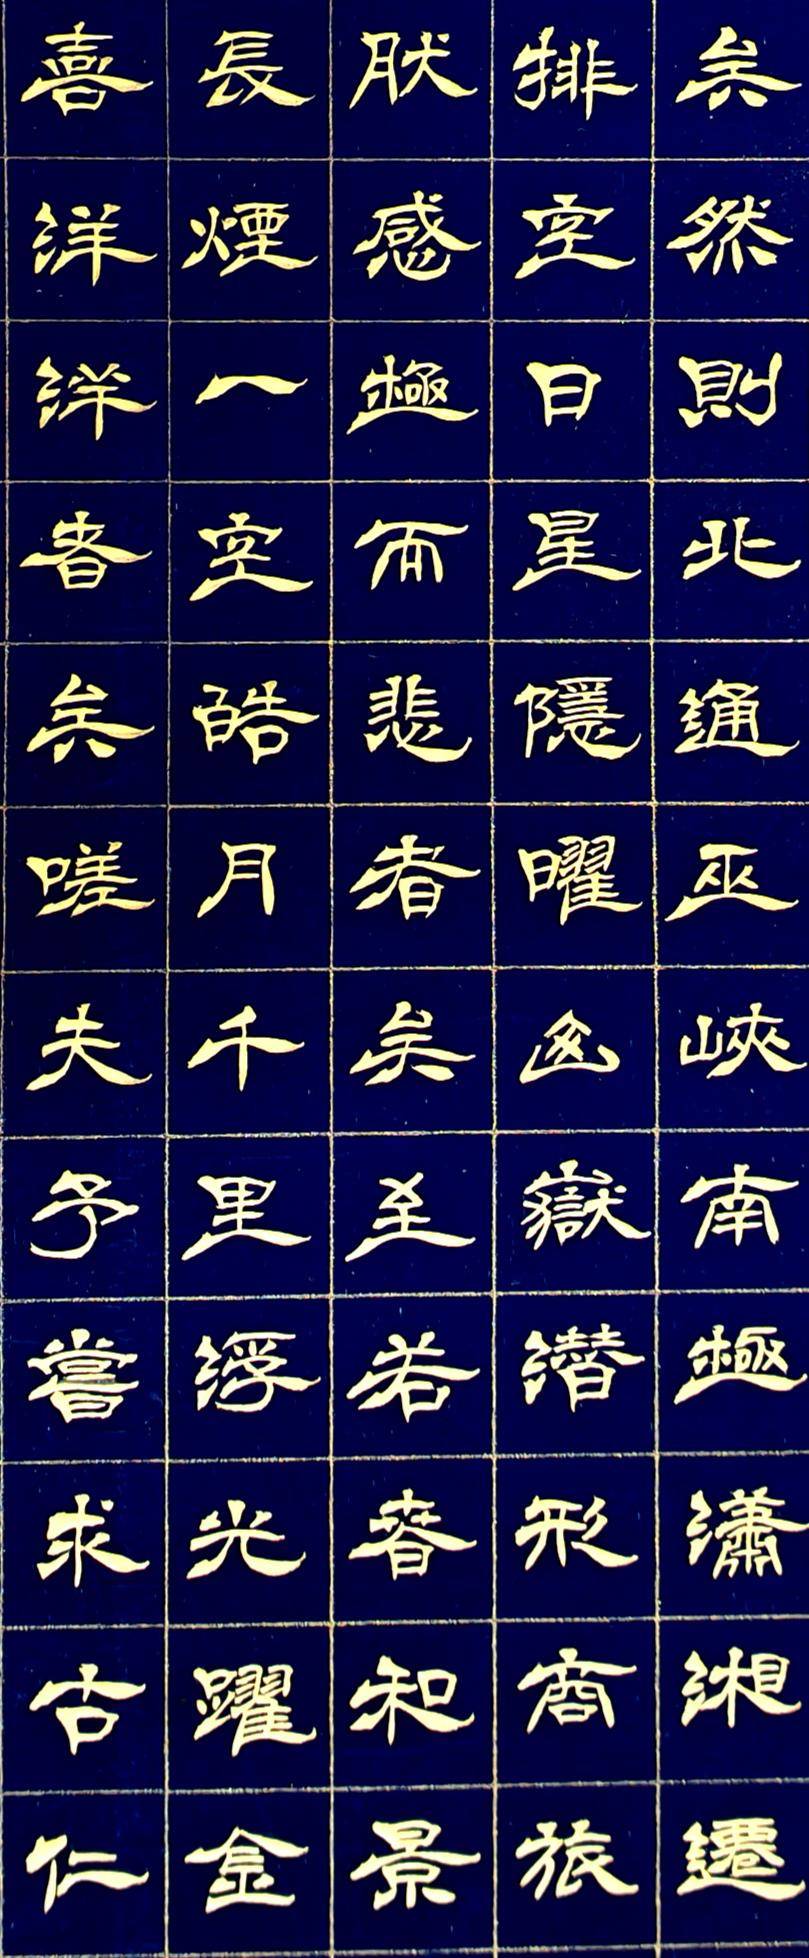 矣然則北通巫峽南極瀟湘遷
排空日星隱曜山嶽潛形商旅
肰感極而悲者矣至若春和景
長煙一空皓月千里浮光躍金
喜洋洋者矣嗟夫予嘗求古仁